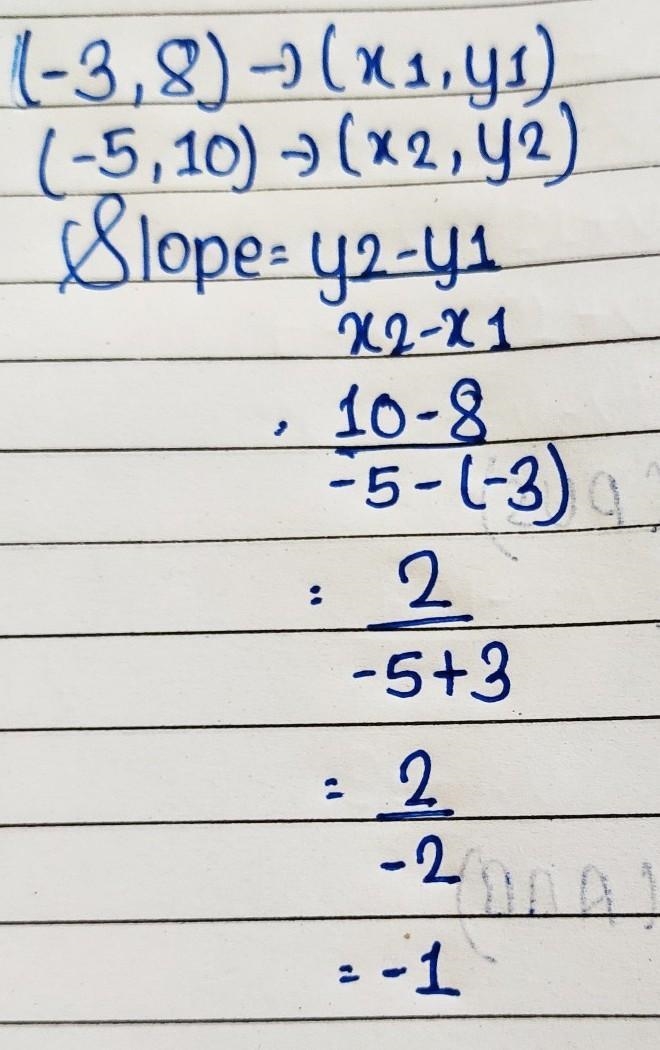 (-3,8) → (x1,y1)
(-5,10) → (x2,y2)
Slope = y2-y1
x2-x1
10-8
-5-(-3)
= 2
-5+3
= 2
-2
= -1